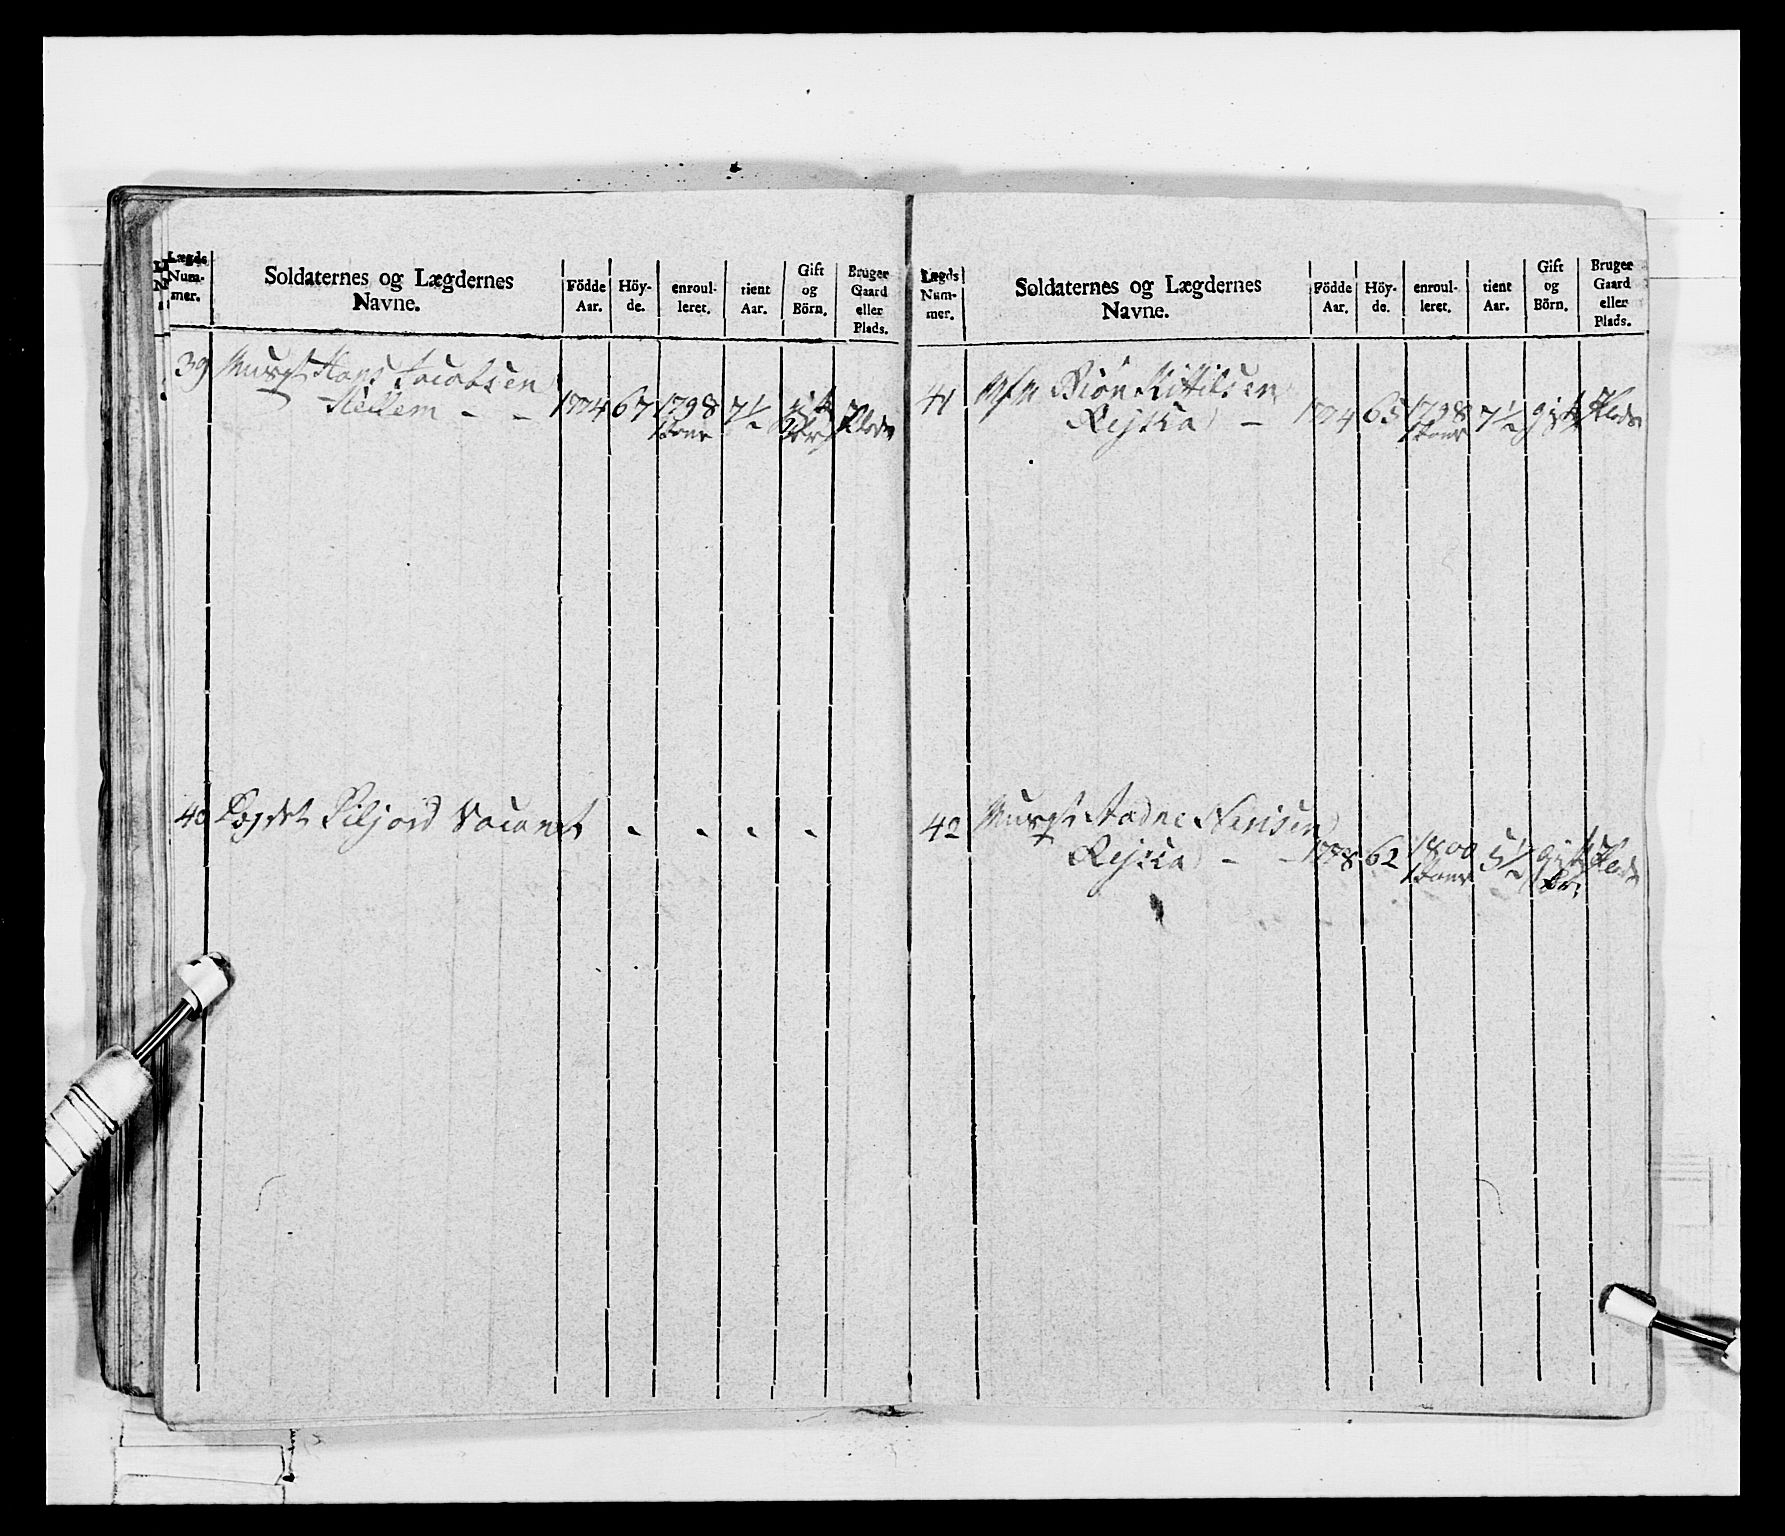 Lægds Num- mer.
Soldaternes og Lægdernes Navne.
Födde Aar.
Höy- de.
enroul- leret.
tient Aar.
Gift og Börn.
Bruger Gaard eller Plads.
39 Musqt Hans Jacobsen
Hellem - - 1774 67 1798 7½ gift Plads
40 Lægdet Kiljord Vacant - - - -
Lægds Num- mer.
Soldaternes og Lægdernes Navne.
Födde Aar.
Höy- de.
enroul- leret.
tient Aar.
Gift og Börn.
Bruger Gaard eller Plads.
41 Biön Kittilsen
Rejska - 1774 65 1798 7½ gift Plads
42 Musqt Aadne
Rejska - - 1778 62 1800 5½ gift Plads